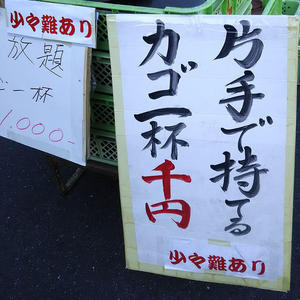 少々難あり
放題
ゴ一杯
1,000-
片手で持てる
カゴ一杯千円
少々難あり